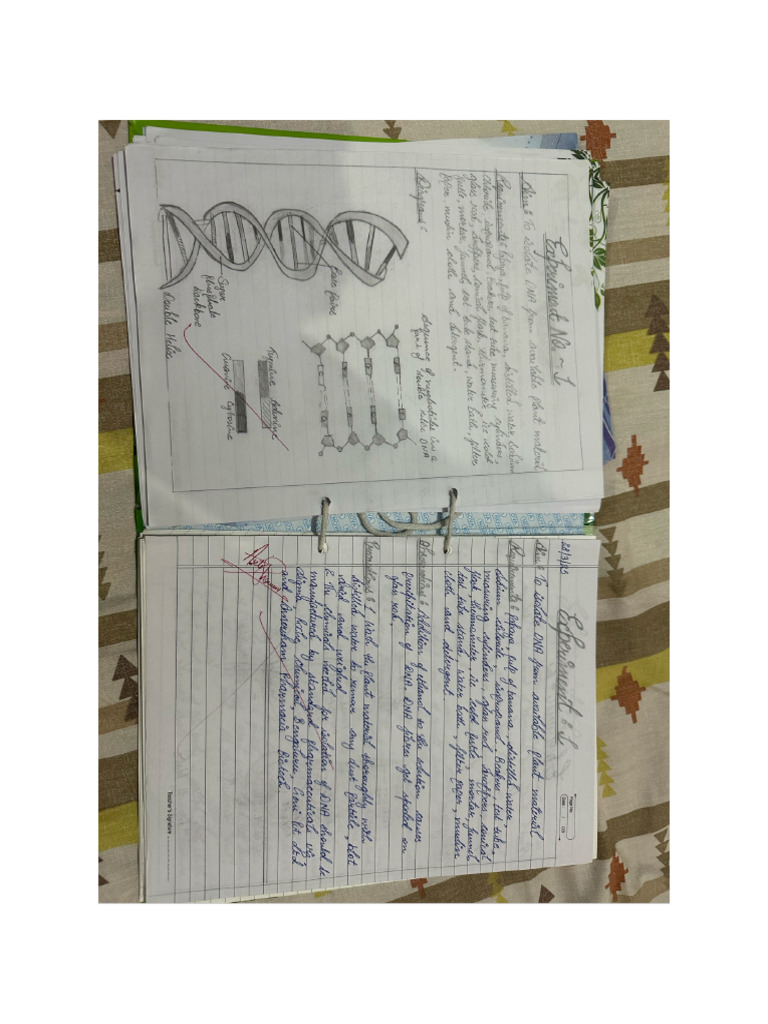 Experiment No - 1
Aim : To isolate DNA from available plant material
Requirements : Papaya, pulp of banana, distilled water, Sodium
chloride, isopropanol, beaker, test tube, measuring cylinders,
glass rod, conical flask, thermometer, ice cold
pestle, mortar, funnels, test tube stand, water bath, filter
paper, muslin cloth and detergent.
Diagram :
Base pairs
Sugar
phosphate
backbone
Double Helix
Sequence of nucleotides in a
part of double helix DNA
Thymine Adenine
Guanine Cytosine
Page No.
Date
Experiment : 1
Aim : To isolate DNA from available plant material
Requirements : Papaya, pulp of banana, distilled water,
sodium chloride, isopropanol, Beaker, test tube,
measuring cylinders, glass rod, conical
flask, thermometer, ice cold pestle, mortar, funnel,
test tube stand, water bath, filter paper, muslin
cloth and detergent.
Observations : Addition of ethanol to the solution causes
precipitation of DNA. DNA fibres get spooled on
glass rod.
Precautions : 1. Wash the plant material thoroughly with
distilled water to remove any dust particle, blot
dried and weighed.
2. The chemicals needed for isolation of DNA should be
manufactured by standard pharmaceuticals viz
sigma,
and Amersham Pharmacia Biotech.
Teacher's Signature